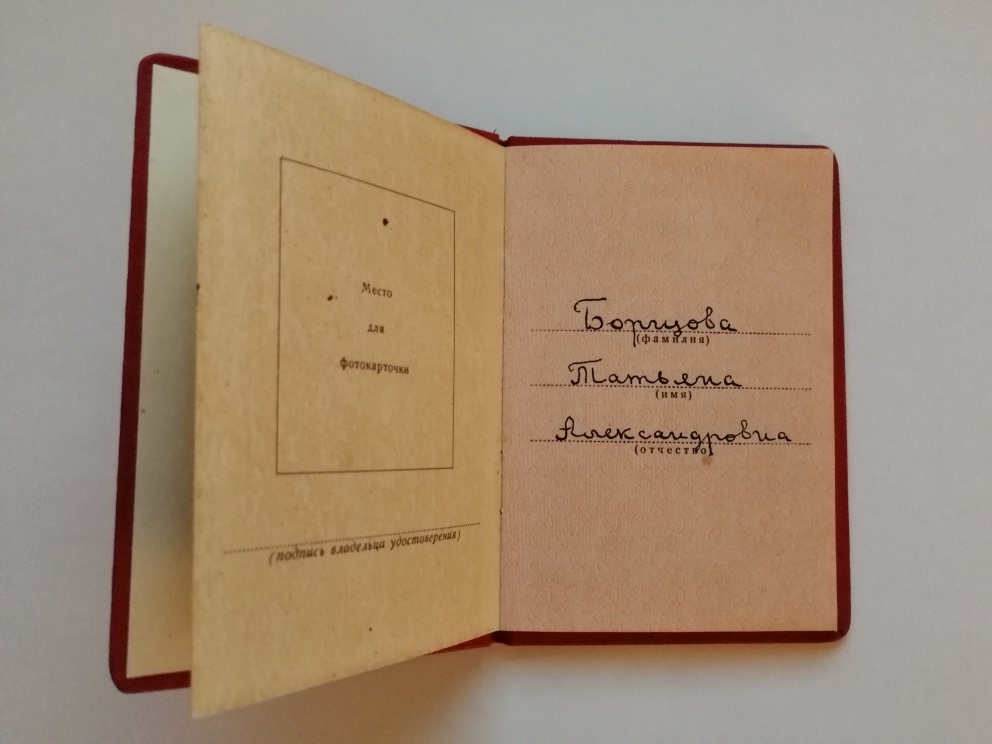 Место
для
фотокарточки
(подпись владельца удостоверения)
Борцова
(фамилия)
Татьяна
(имя)
Александровна
(отчество)